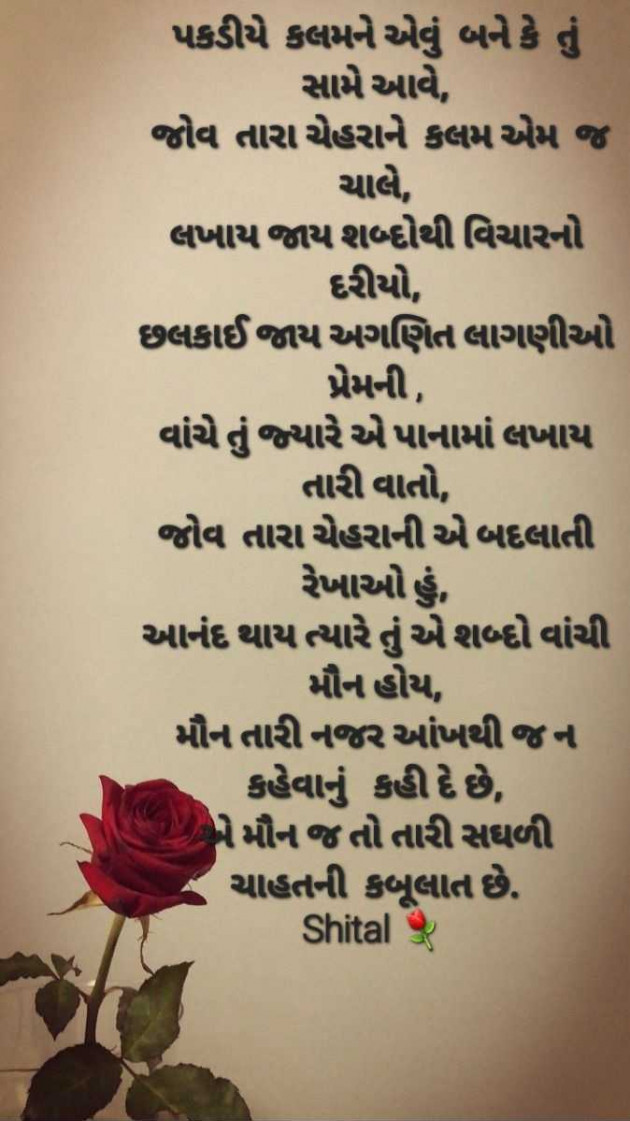 પકડીયે કલમને એવું બને કે તું
સામે આવે,
જોવ તારા ચેહરાને કલમ એમ જ
ચાલે,
લખાય જાય શબ્દોથી વિચારનો
દરીયો,
છલકાઈ જાય અગણિત લાગણીઓ
પ્રેમની ,
વાંચે તું જ્યારે એ પાનામાં લખાય
તારી વાતો,
જોવ તારા ચેહરાની એ બદલાતી
રેખાઓ હું,
આનંદ થાય ત્યારે તું એ શબ્દો વાંચી
મૌન હોય,
મૌન તારી નજર આંખથી જ ન
કહેવાનું કહી દે છે,
એ મૌન જ તો તારી સઘળી
ચાહતની કબૂલાત છે.
Shital 🌹